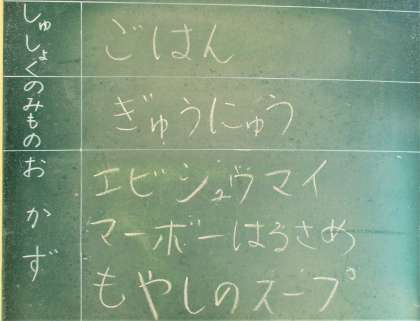 しゅしょく
ごはん
のみもの
ぎゅうにゅう
おかず
エビシュウマイ
マーボーはるさめ
もやしのスープ